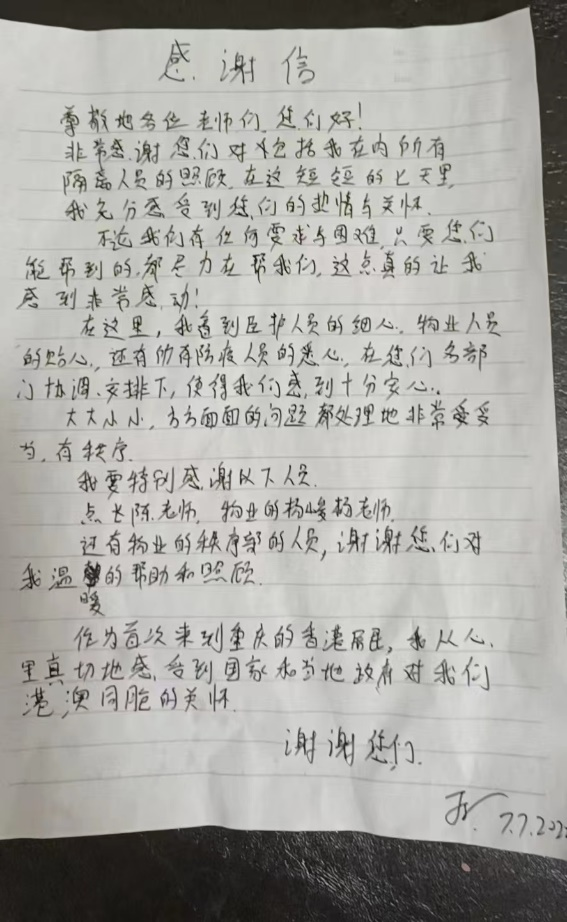 感谢信
尊敬地各位老师们,您们好!
非常感谢您们对包括我在内所有
隔离人员的照顾.在这短短的七天里,
我充分感受到您们的热情与关怀.
不论我们有任何要求与困难,只要您们
能帮到的,都尽力在帮我们,这点真的让我
感到非常感动!
在这里,我看到医护人员的细心,物业人员
的贴心,还有所有防疫人员的悉心,在您们各部
门协调、安排下,使得我们感到十分安心.
大大小小,方方面面的问题都处理地非常妥妥
当,有秩序.
我要特别感谢以下人员.
点长陈老师,物业的杨峻杨老师.
还有物业的秩序部的人员,谢谢您们对
我温暖的帮助和照顾.
作为首次来到重庆的香港居民,我从心
里真切地感受到国家和当地政府对我们
港澳同胞的关怀.
谢谢您们.
7.7.202